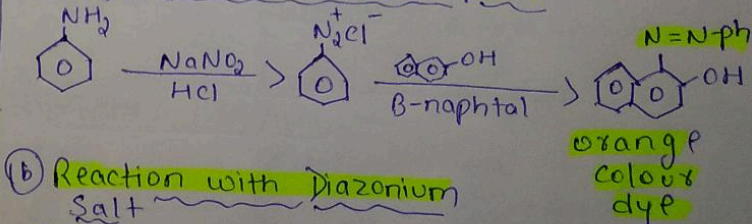 NH2
N2+Cl-
N=N-ph
NaNO2
HCl
OH
B-naphtal
OH
orange
colour
dye
(b) Reaction with Diazonium
Salt